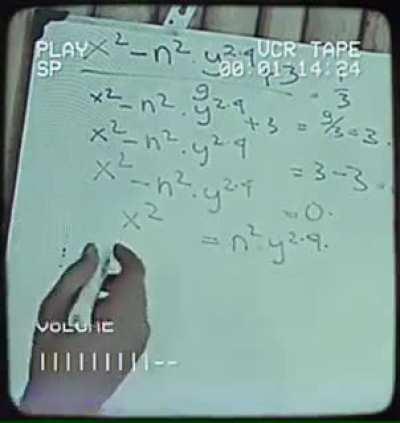 PLAY VCR TAPE
SP 00:01:14:24
x² - n² · y²·9 + 3
9 = 1/3
x² - n² · y²·9 + 3 = 9/3 = 3.
x² - n² · y²·9 = 3 - 3
x² - n² · y²·9 = 0.
x² = n² · y²·9.
VOLUME